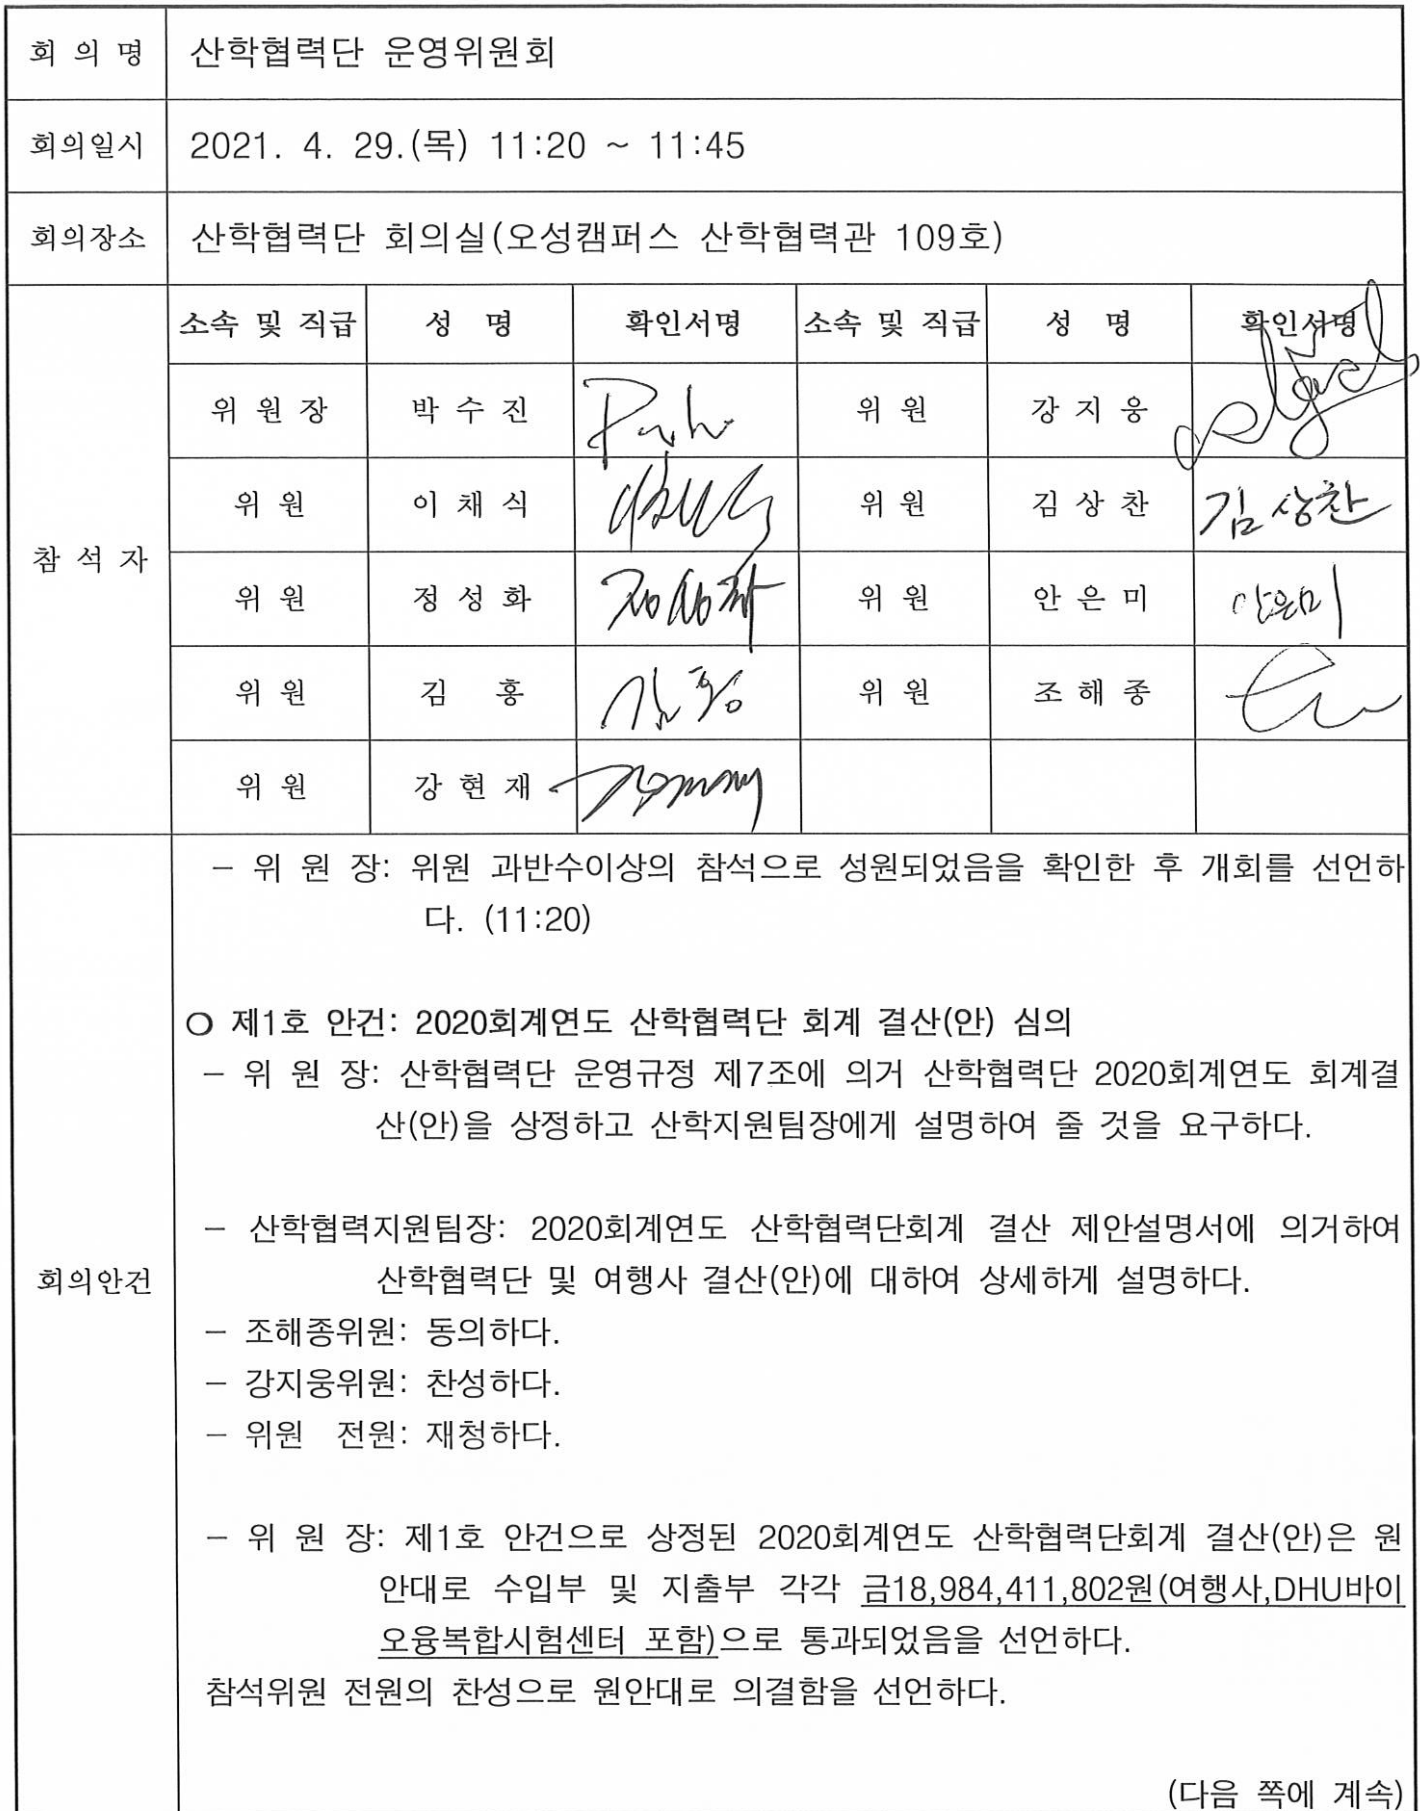 회 의 명 산학협력단 운영위원회
회의일시 2021. 4. 29.(목) 11:20 ~ 11:45
회의장소 산학협력단 회의실(오성캠퍼스 산학협력관 109호)
참 석 자
소속 및 직급 성 명 확인서명 소속 및 직급 성 명 확인서명
위 원 장 박 수 진 위 원 강 지 웅
위 원 이 채 식 위 원 김 상 찬 김상찬
위 원 정 성 화 정성화 위 원 안 은 미 안은미
위 원 김 홍 김홍 위 원 조 해 종
위 원 강 현 재
회의안건
– 위 원 장: 위원 과반수이상의 참석으로 성원되었음을 확인한 후 개회를 선언하
다. (11:20)
○ 제1호 안건: 2020회계연도 산학협력단 회계 결산(안) 심의
– 위 원 장: 산학협력단 운영규정 제7조에 의거 산학협력단 2020회계연도 회계결
산(안)을 상정하고 산학지원팀장에게 설명하여 줄 것을 요구하다.
– 산학협력지원팀장: 2020회계연도 산학협력단회계 결산 제안설명서에 의거하여
산학협력단 및 여행사 결산(안)에 대하여 상세하게 설명하다.
– 조해종위원: 동의하다.
– 강지웅위원: 찬성하다.
– 위원 전원: 재청하다.
– 위 원 장: 제1호 안건으로 상정된 2020회계연도 산학협력단회계 결산(안)은 원
안대로 수입부 및 지출부 각각 금18,984,411,802원(여행사,DHU바이
오융복합시험센터 포함)으로 통과되었음을 선언하다.
참석위원 전원의 찬성으로 원안대로 의결함을 선언하다.
(다음 쪽에 계속)